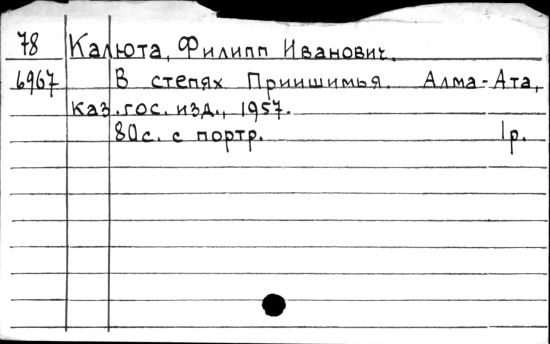 78 Калюта, Филипп Иванович.
6967 В степях Приишимья. Алма-Ата,
каз.гос.изд., 1957.
80с. с портр. 1р.